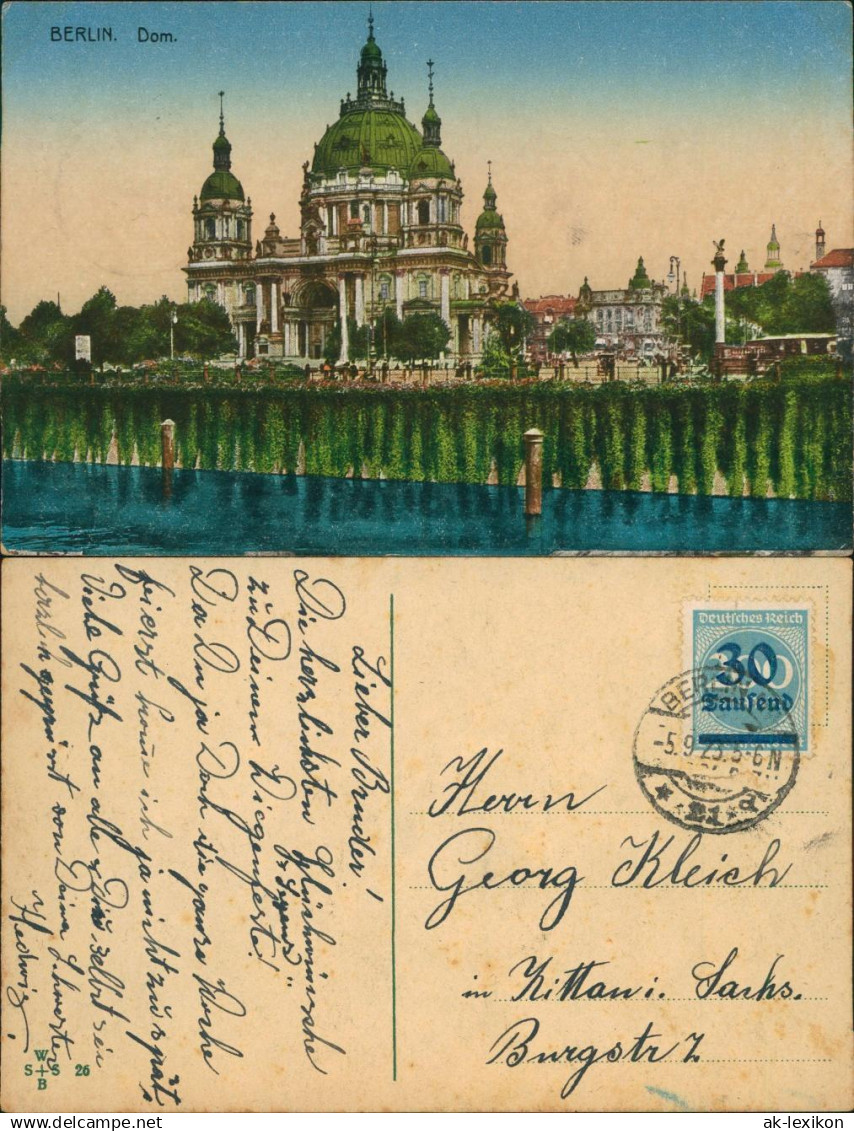 BERLIN. Dom.
Lieber Bruder!
Die herzlichsten Glückwünsche
zu Deinem Wiegenfeste!
Da Du ja Doch die ganze Woche
feierst komme ich ja nicht zu spät.
Viele Grüße an alle & Du selbst sei
herzlich gegrüßt von Deiner Schwester
Hedwig.
W
S+S 26
B
Deutsches Reich
30
Tausend
BERLIN
-5.9.23.5-6N
Herrn
Georg Kleich
in Zittau i. Sachs.
Burgstr 7
www.delcampe.net
ak-lexikon